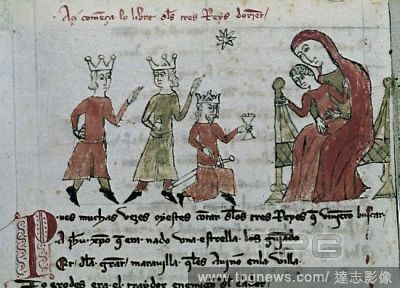 Açi comença lo libre dels tres Reys dorient
Pues muchas vezes oyestes contar delos tres Reyes q̃ vinieron buscar
A Jhũ xp̃o q̃ era nado una estrella los guiando
Et dela grant maravilla q̃ les avino en la villa
Do erodes era el traydor enemigo del
www.tpgnews.com/ 達志影像
TPG